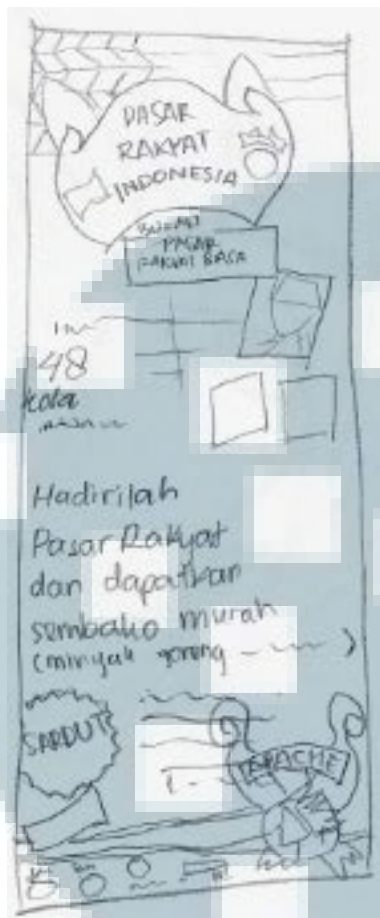 PASAR
RAKYAT
INDONESIA
PASAR
RAKYAT
48
kota
Hadirilah
Pasar Rakyat
dan dapatkan
sembako murah
(minyak goreng - - - - )
SARDUT
APACHE